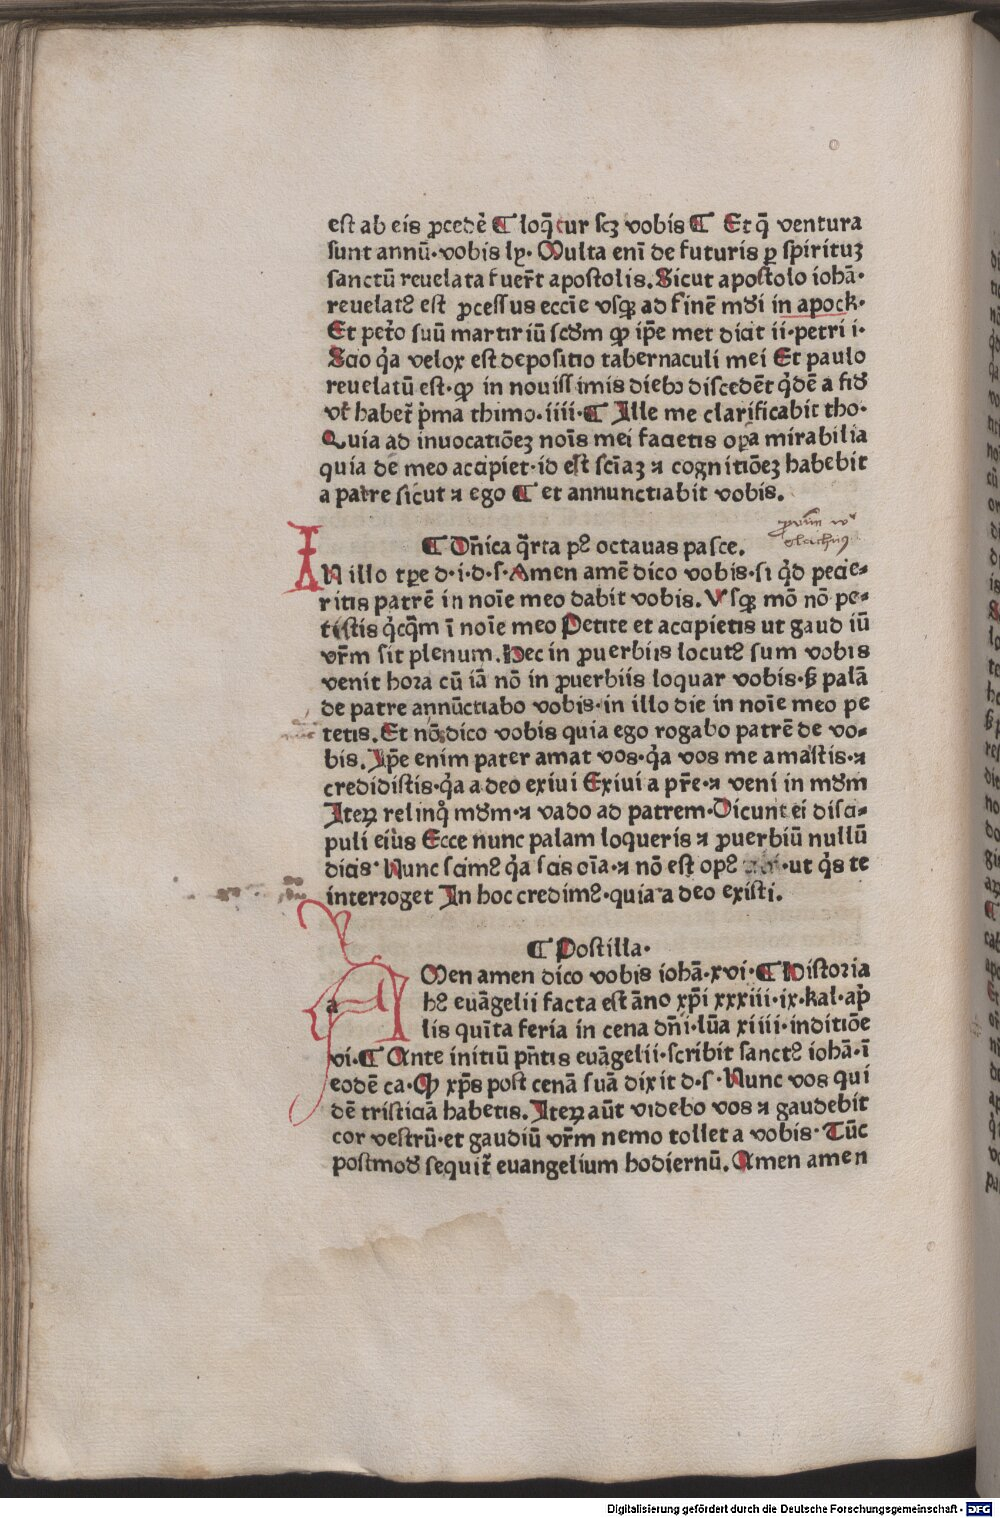 est ab eis ꝓcedḕ ¶ loq̄tur sꝫ vobis ¶ Et q̄ ventura
sunt annū·vobis lỿ· Multa enī de futuris ꝑ spirituꝫ
sanctū reuelata fuer̄t apostolis. Sicut apostolo iohā·
reuelatꝰ est ꝓcessus ecc̄ie vsqꝫ ad finē mūdi in apock·
Et petr̄o suū martiriū scd̄m ꝙ ip̄e met dicit ii·petri i·
Scio q̇a velox est depositio tabernaculi mei Et paulo
reuelatū est·ꝙ in nouissimis diebꝫ discedēt q̇dē a fid
vt̄ haber̄ ṗma thimo·iiii·¶ Ille me clarificabit tho·
Quia ad inuocatiōeꝫ noīs mei facietis oꝑa mirabilia
quia de meo accipiet·id est sc̄iaꝫ ⁊ cognitiōeꝫ habebit
a patre sicut ⁊ ego ¶ et annunctiabit vobis.
¶ Dn̄ica q̄rta pꝰ octauas pasce.
IN illo tꝑe d·i·d·s·Amen amē dico vobis·si q̇d pecie-
ritis patrē in noīe meo dabit vobis. Vsqꝫ mō nō pe-
tistis q̇cq̄m ī noīe meo Petite et accipietis ut gaudiū
vr̄m sit plenum. Hec in ꝓuerbiis locutꝰ sum vobis
venit hora cū iā nō in ꝓuerbiis loquar vobis·ẞ palā
de patre annūctiabo vobis·in illo die in noīe meo pe
tetis. Et nō dico vobis quia ego rogabo patrē de vo-
bis. Ip̄e enim pater amat vos·q̇a vos me amastis·⁊
credidistis·q̇a a deo exiui Exiui a pr̄e·⁊ veni in mūdm
Iteꝝ relinq̇ mūdm·⁊ vado ad patrem·Dicunt ei disci-
puli eiùs Ecce nunc palam loqueris ⁊ ꝓuerbiū nullū
dicis· Nunc scimꝰ q̇a scis oīa·⁊ nō est opꝰ ·ut q̇s te
interroget In hoc credimꝰ·quia a deo existi.
¶ Postilla·
AMen amen dico vobis iohā·xvi·¶ Historia
hꝰ euāgelii facta est āno xp̄i xxxiii·ix·kal·ap̄
lis quīta feria in cena dn̄i·lūa xiiii·inditiōe
vi·¶ Ante initiū pn̄tis euāgelii·scribit sanctꝰ iohā·ī
eodē ca·Ꝙ xp̄s post cenā suā dixit d·s· Nunc vos qui
dē tristiciā habetis. Iteꝝ aūt videbo vos ⁊ gaudebit
cor vestrū·et gaudiū vr̄m nemo tollet a vobis· Tūc
postmod sequit̄ euangelium hodiernū. Amen amen
Digitalisierung gefördert durch die Deutsche Forschungsgemeinschaft - DFG